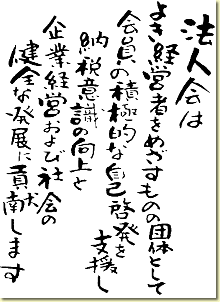 法人会は
よき経営者をめざすものの団体として
会員の積極的な自己啓発を
支援し
納税意識の向上と
企業経営および社会の
健全な発展に貢献します